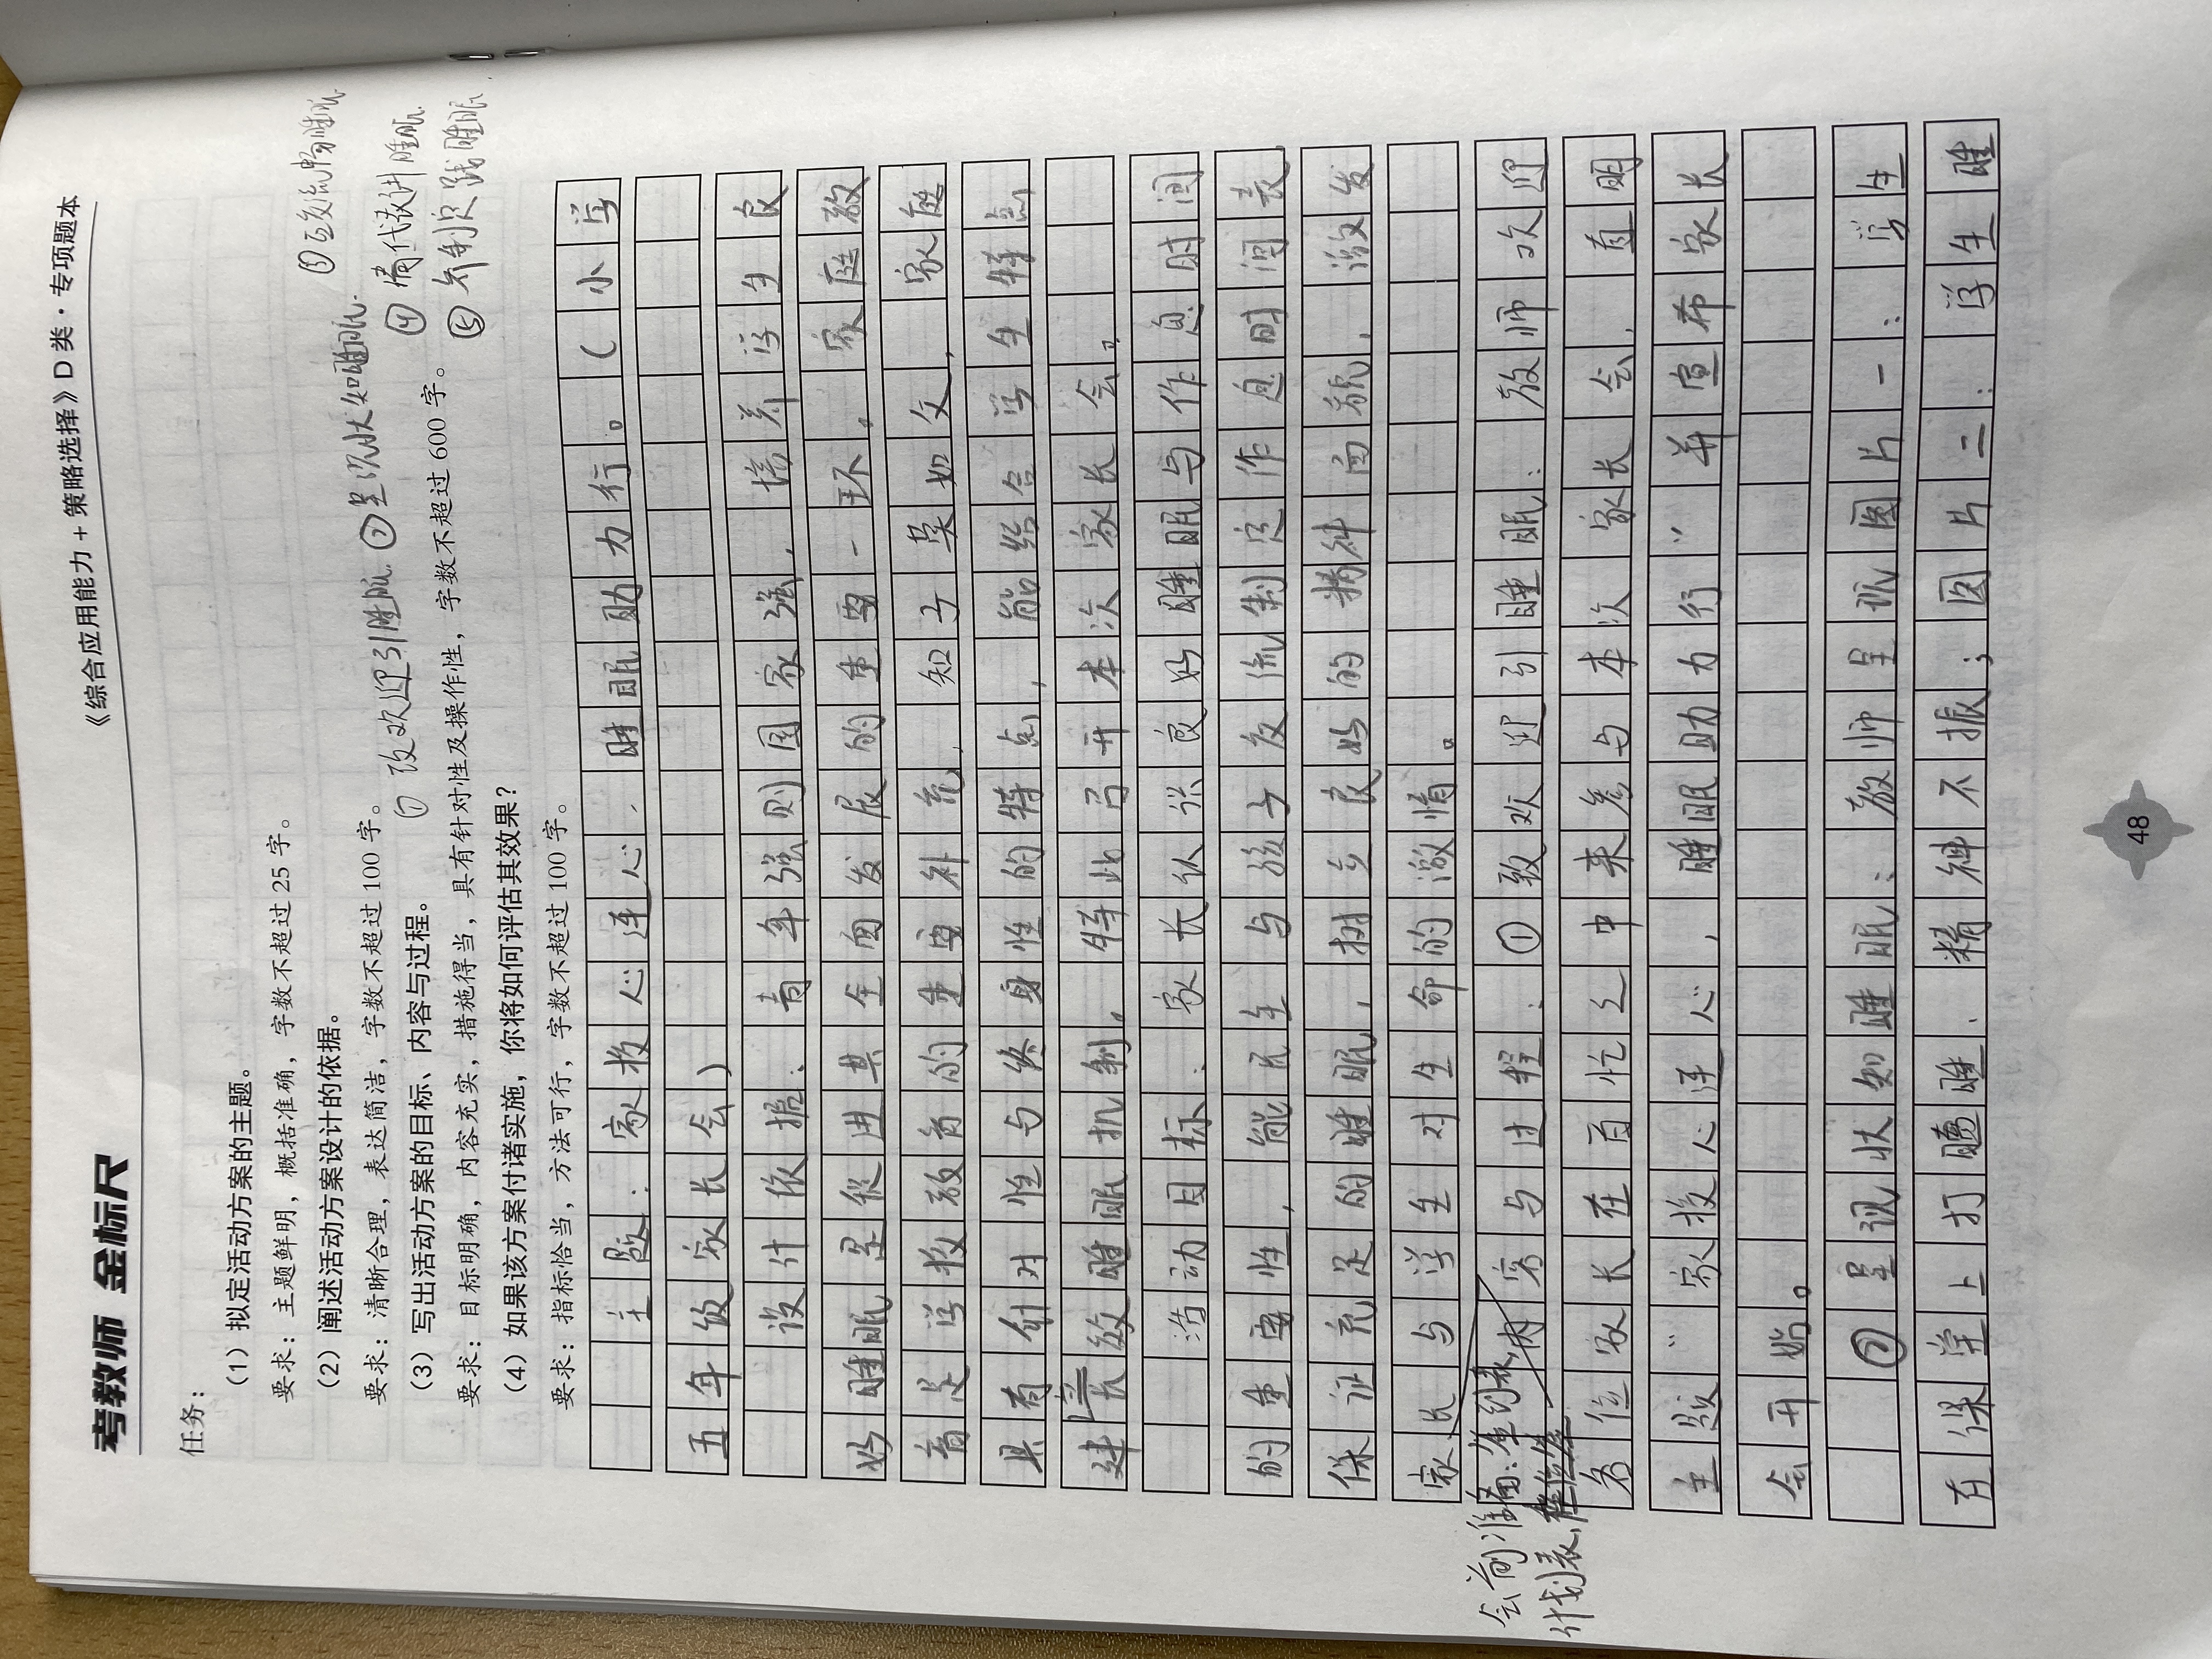 考教师 金标尺
《综合应用能力+策略选择》D类·专项题本
任务：
（1）拟定活动方案的主题。
要求：主题鲜明，概括准确，字数不超过25字。
（2）阐述活动方案设计的依据。
要求：清晰合理，表达简洁，字数不超过100字。
（3）写出活动方案的目标、内容与过程。
要求：目标明确，内容充实，措施得当，具有针对性及操作性，字数不超过600字。
（4）如果该方案付诸实施，你将如何评估其效果？
要求：指标恰当，方法可行，字数不超过100字。
① 致欢迎引睡眠 ②呈现状知睡眠
③互交流畅睡眠
④请代表讲睡眠
⑤齐制定践睡眠
主题：家校心连心，睡眠助力行。（小学
五年级家长会）
设计依据：青年强则国家强，培养学生良
好睡眠是促进其全面发展的重要一环。家庭教
育是学校教育的重要补充，知子莫如父，家庭
具有针对性与终身性的特点，能结合学生特点
建长效睡眠机制。特此召开本次家长会。
活动目标：家长认识良好睡眠与作息时间
的重要性，能民主与孩子交流制定作息时间表，
保证充足的睡眠，树立良好的精神面貌，激发
家长与学生对生命的激情。
会前准备：签到表，
计划表，
内容与过程：①致欢迎引睡眠：教师欢迎
各位家长在百忙之中来参与本次家长会，直明
主题“家校心连心，睡眠助力行”并宣布家长
会开始。
②呈现状知睡眠：教师呈现图片一：学生
在课堂上打瞌睡、精神不振；图片二：学生睡
48